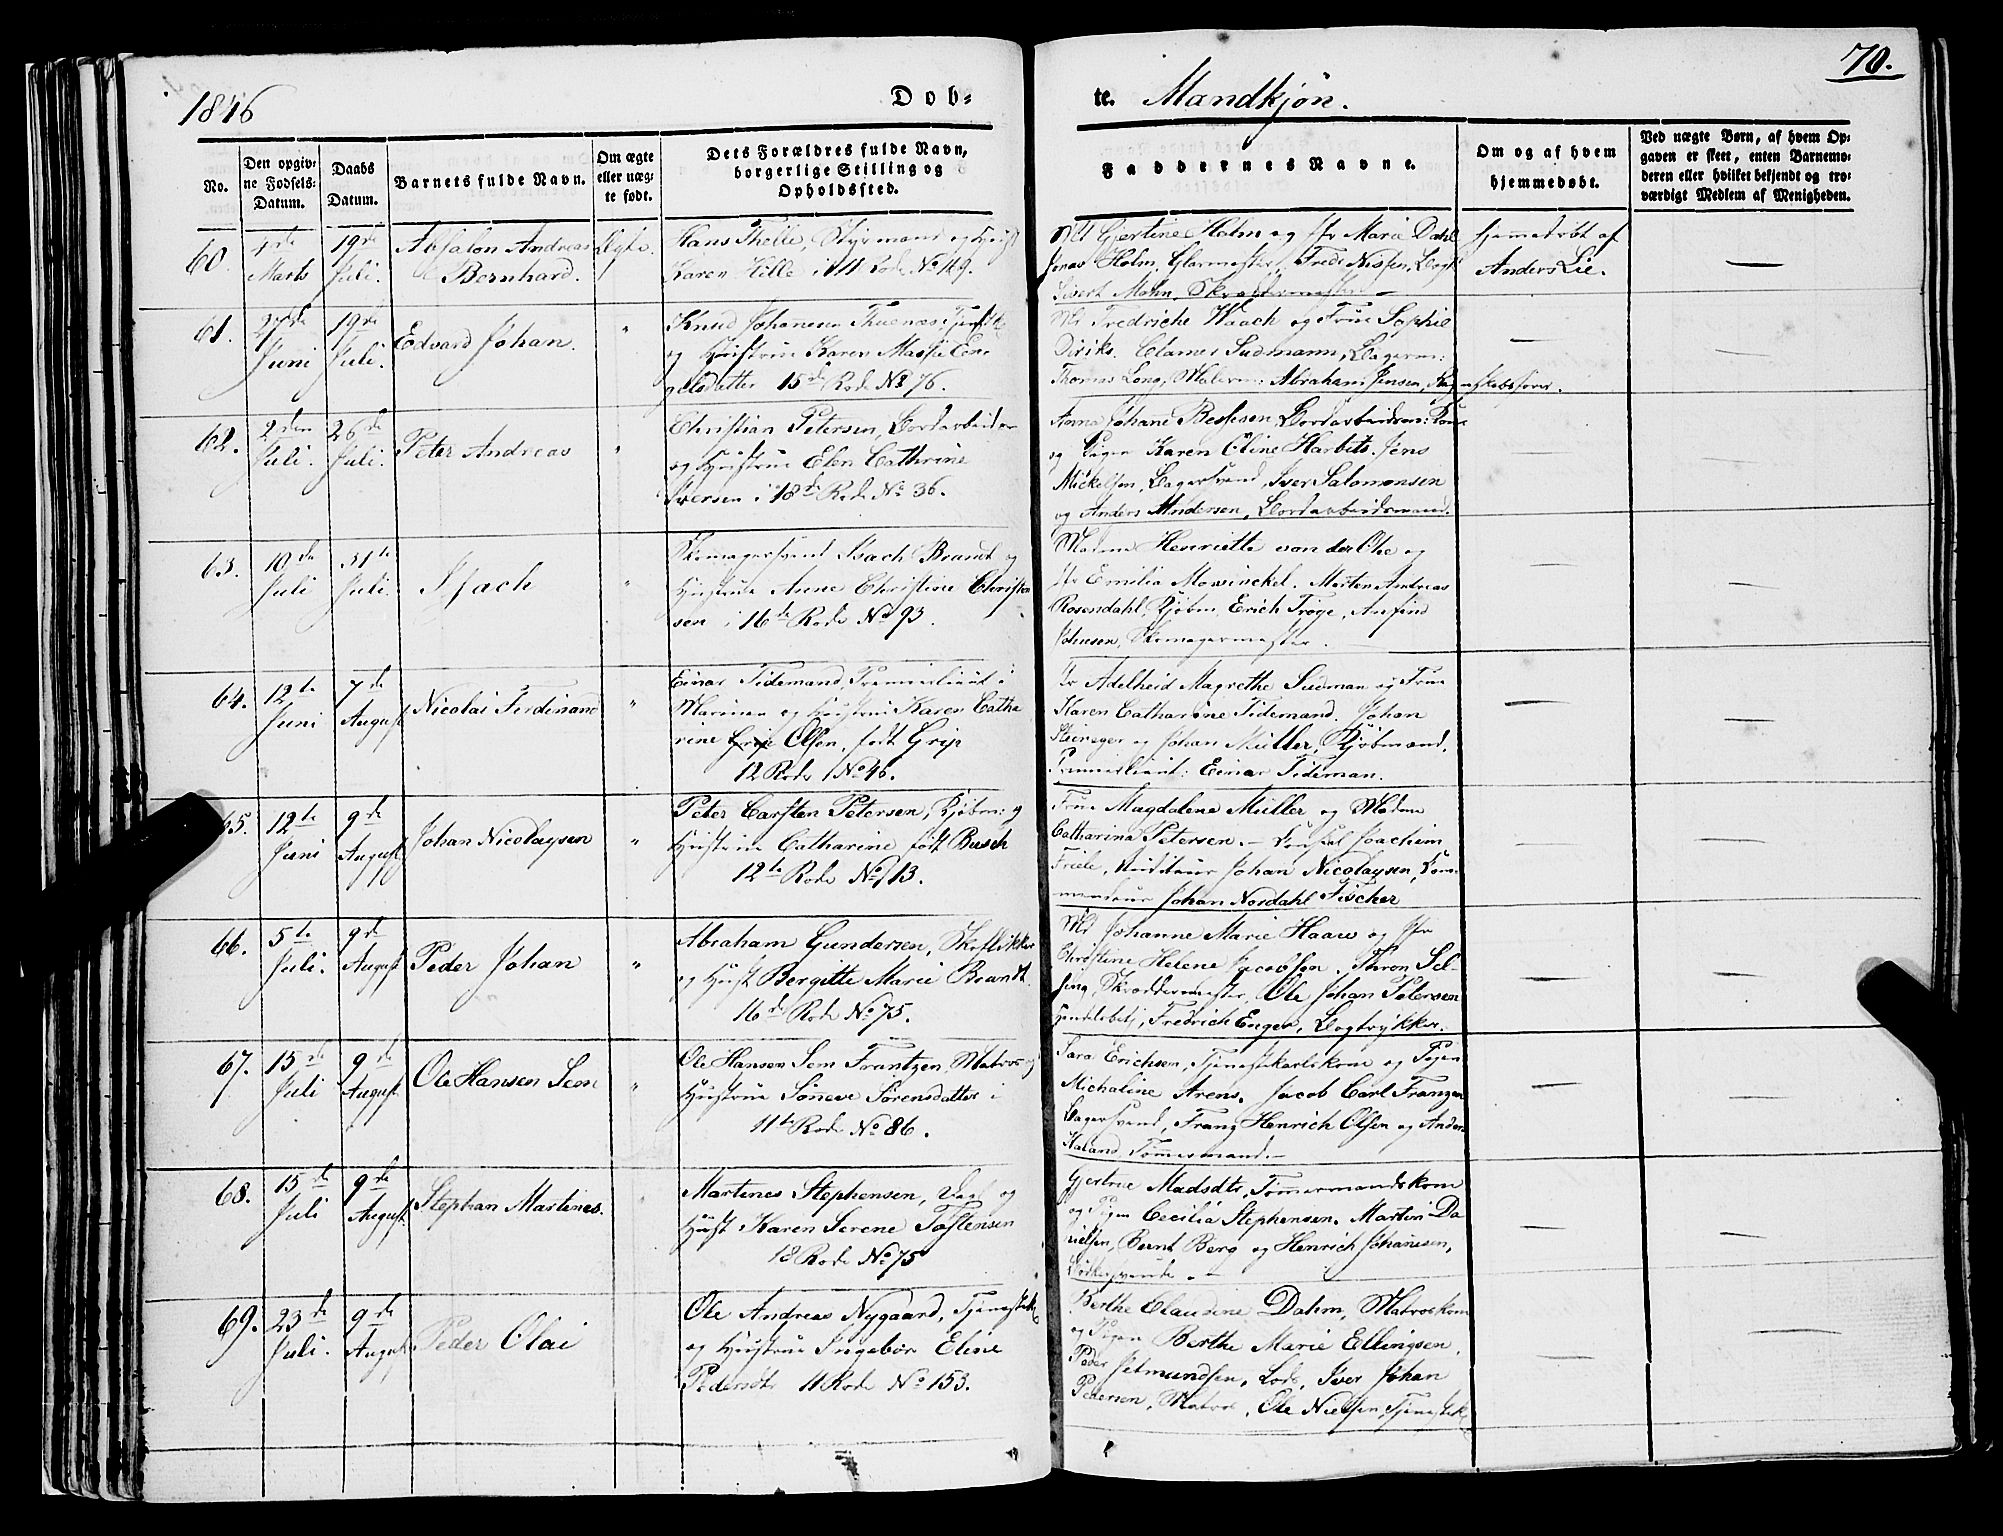 1846
Dob-
te. Mandkjön.
70.
No.
Den opgiv-
ne Fødsels-
Datum.
Daabs
Datum.
Barnets fulde Navn.
Om ægte
eller uæg-
te født.
Dets Forældres fulde Navn,
borgerlige Stilling og
Opholdssted.
Faddernes Navne.
Om og af hvem
hjemmedøbt.
Ved uægte Børn, af hvem Op-
gaven er skeet, enten Barnemo-
deren eller hvilket bekjendt og tro-
værdigt Medlem af Menigheden.
60.
Marts
19de
Juli.
Absalon Andreas
Bernhard.
Ægte.
Hans Thelle, Styrmand og Hust
Karen Hille i 11 Rode No 49.
Gjertine Holm og Jfr Marie Dahl
Jonas Holm, Glarmester, Fredr Nissen,
Sivert Mohn, Skrædermester
Hjemmedøbt af
Anders Lie.
61.
27de
Juni
19de
Juli.
Edvard Johan.
"
Knud Johannesen
og Hustrue Karen
gelsdatter 15de Rode No 76.
Fredriche Waach og Frue Sophie
Diriks. Clames Sudmann, Bagerm:
Thomas Long, Malerm: Abraham Jensen,
62.
2den
Juli.
26de
Juli.
Peter Andreas
"
Christian Petersen, Bordarbeider
og Hustrue Elen Cathrine
Iversen i 18de Rode No 36.
Anne Johane Bessesen, Bordarbeidsm: Kone
og Pigen Karen Oline Harbits. Jens
Mickelsen, Bagersvend, Iver Salomonsen
og Anders Andersen, Bordarbeidsmænd.
63.
10de
Juli
31te
Juli.
Isach
"
Skomagersvend Isach Brandt og
Hustrue Anne Christine Christen
sen i 16de Rode No 93.
Madme Henriette von der Ohe og
Jfr Emilia Mowinckel. Morten Andreas
Rosendahl, Kjøbm, Erich Troye, Anfind
Johnsen, Skomagermester.
64.
12te
Juni
7de
August
Nicolai Ferdinand
"
Einar Tidemand, Premierlieut i
Marinen og Hustrue Karen Catha
rine Olsen, født Grip
12 Rode No 46.
Jfr Adelheid Magrethe Sudman og Frue
Karen Catharine Tidemand. Johan
og Johan Müller, Kjøbmænd,
Premierlieut: Einar Tideman.
65.
12te
Juni
9de
August
Johan Nicolaysen
"
Peter Carsten Petersen, Kjøbm: og
Hustrue Catharine født Busch
12te Rode No 113.
Frue Magdalene Müller og Madm
Catharina Petersen. – Consul Joachim
Friele, Auditeur Johan Nicolaysen, Com-
mandeur Johan Nordahl Fischer
66.
5te
Juli.
9de
August
Peder Johan
"
Abraham Gundersen, Skoflikker
og Hust Bergitte Marie Brandt.
16de Rode No 75.
Md Johanne Marie Haaw og Jfr
Christine Helene Jacobsen. Thron Sel-
Skreddermester, Ole Johan Petersen
Fredrich Enger, Bogtrykker.
67.
15de
Juli
9de
August
Ole Hansen Sem
"
Ole Hansen Sem Frantzen, Matros og
Hustrue Søneve Sørensdatter i
11te Rode No 86.
Sara Erichsen, Tjenestekarlskone og Pigen
Michaline Arens. Jacob Carl Franzen
Bagersvend, Franz Henrich Olsen og Anders
Haland Tømmermænd.–
68.
15de
Juli
9de
August
Stephan Martines.
Martines Stephensen, og
Hust Karen Serene Tostensen
18 Rode No 75
Gjertrue Madsdtr, Tømmermandskone
og Pigen Cecilia Stephensen. Martin Da
nielsen, Bernt Berg og Henrich Johannesen,
Bødkersvende. –
69.
23de
Juli.
9de
August
Peder Olai
Ole Andreas Nygaard, Tjenestek
og Hustrue Ingebor Eline
Pedersdtr 11 Rode No 153.
Berthe Clausine Dahm, Matroskone
og Pigen Berthe Marie Ellingsen.
Peder Lods, Iver Johan
Pedersen, Matros, Ole Nielsen, Tjenestek